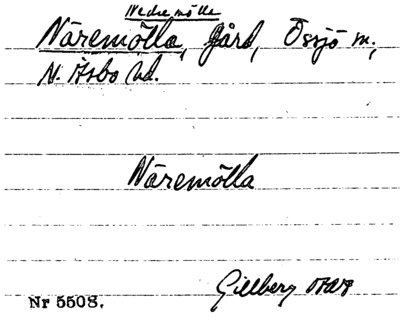 Nedremölla
Näremölla, Gård, Össjö sn,
N. Åsbo hd.
Näremölla
Gillberg
Nr 5508.